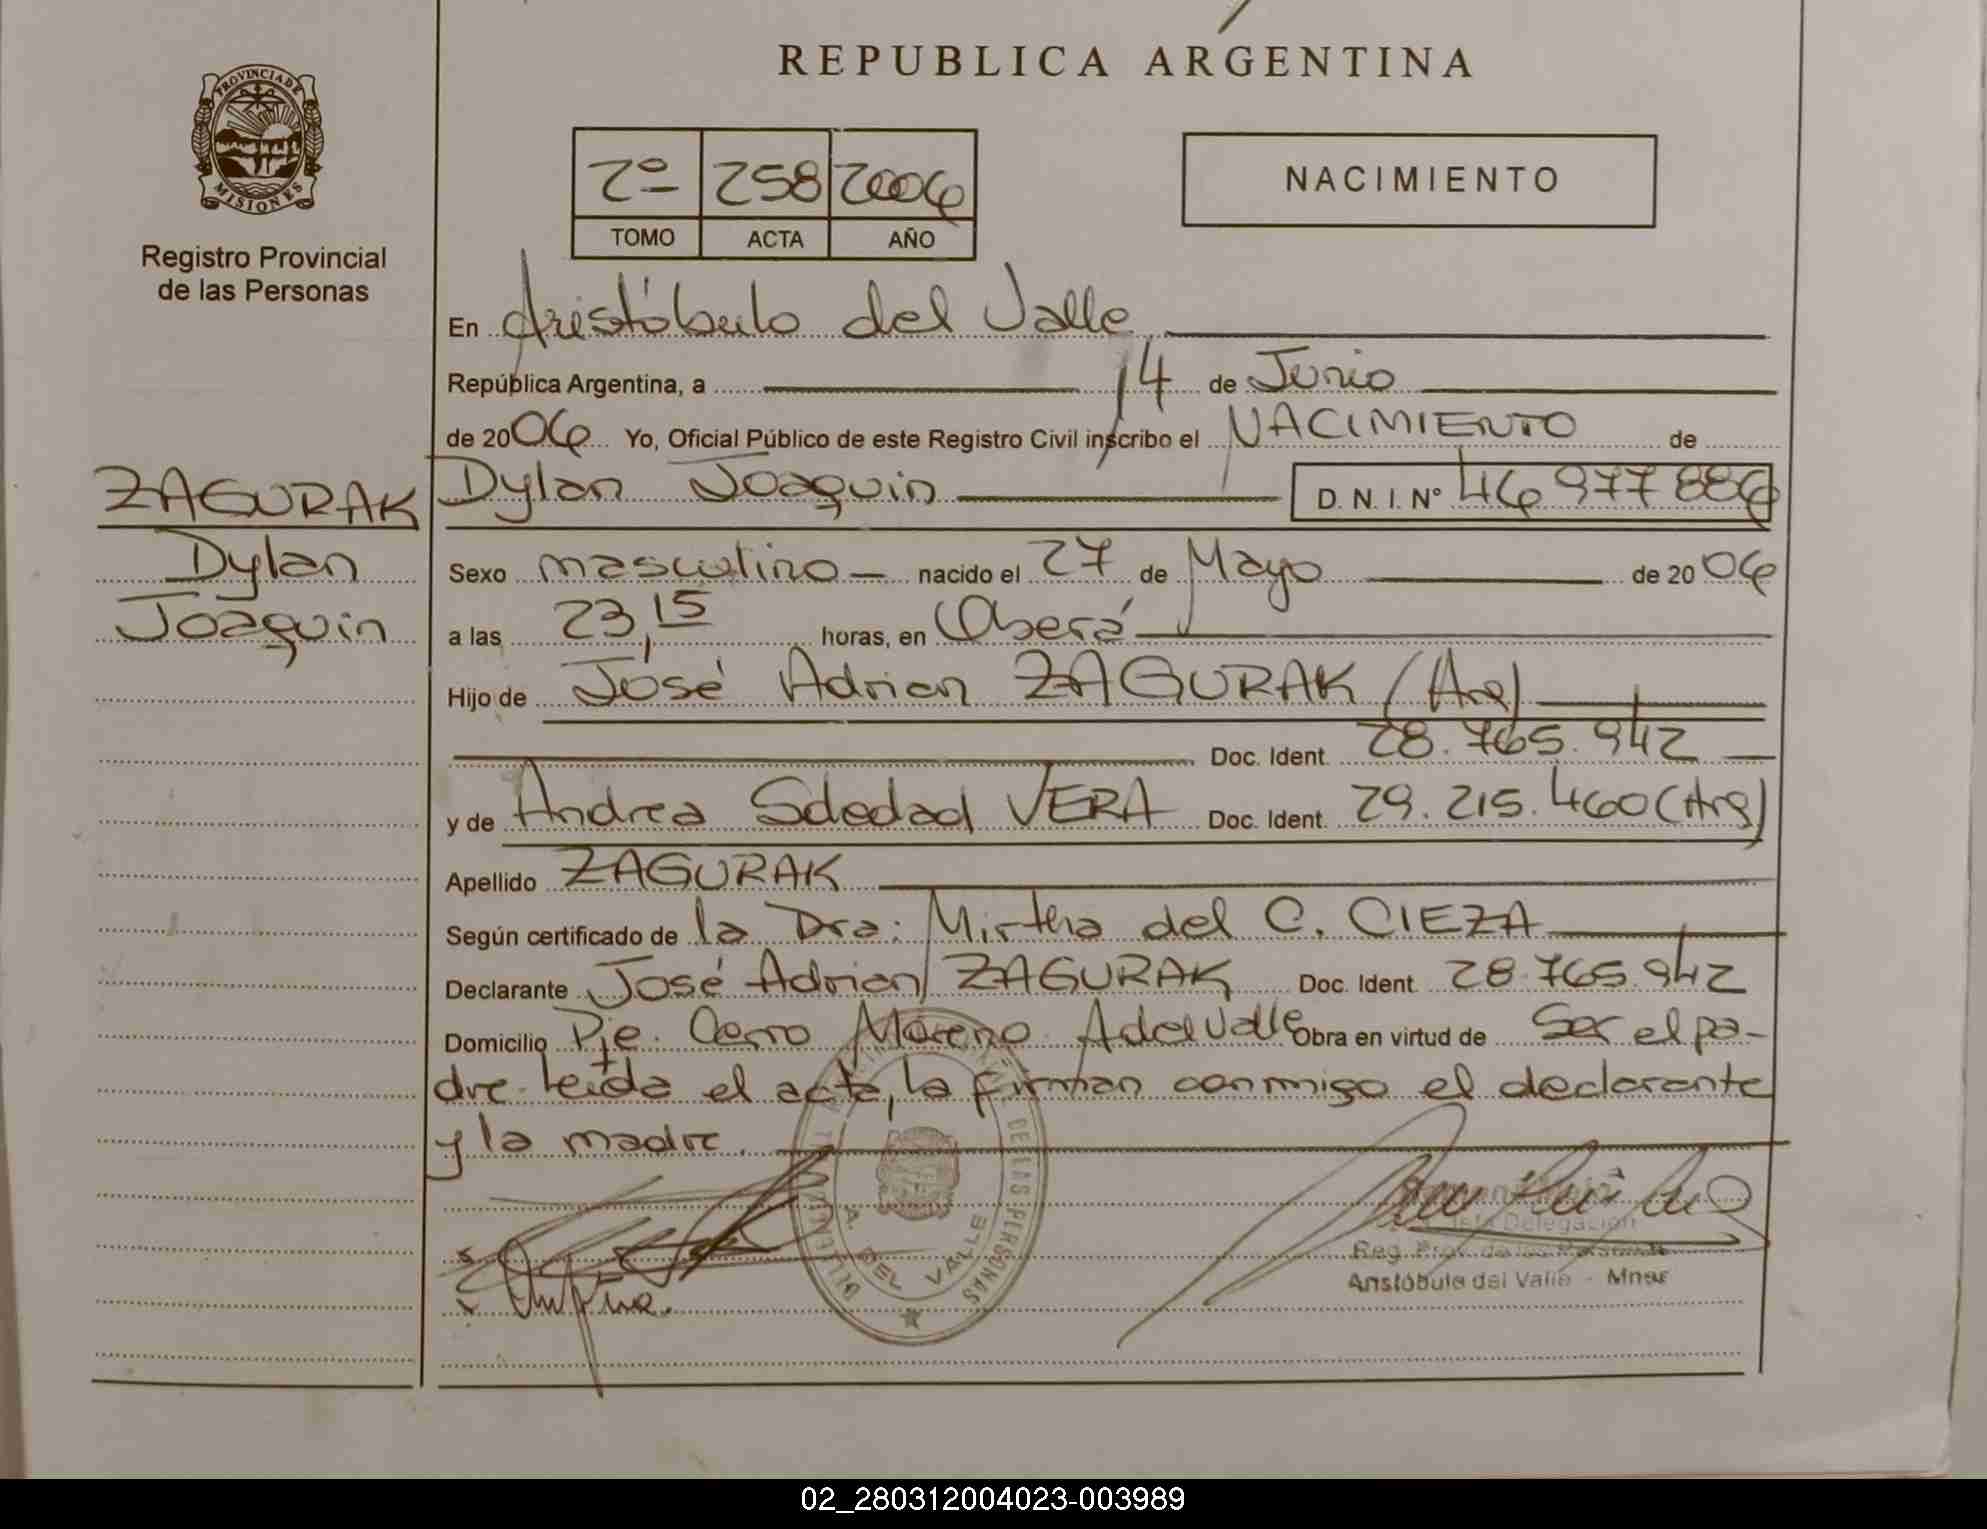 REPUBLICA ARGENTINA
PROVINCIA DE MISIONES
Registro Provincial
de las Personas
2º 258 2006
TOMO ACTA AÑO
NACIMIENTO
En Aristóbulo del Valle
República Argentina, a 14 de Junio
de 2006 Yo, Oficial Público de este Registro Civil inscribo el NACIMIENTO de
ZAGURAK
Dylan
Joaquin
Dylan Joaquin D. N. I. N° 46 977 886
Sexo masculino nacido el 27 de Mayo de 2006
a las 23,15 horas, en Oberá
Hijo de José Adrian ZAGURAK (Arg)
Doc. Ident. 28.765.942
y de Andrea Soledad VERA Doc. Ident. 29.215.460 (Arg)
Apellido ZAGURAK
Según certificado de la Dra: Mirtha del C. CIEZA
Declarante José Adrian ZAGURAK Doc. Ident. 28.765.942
Domicilio Pje. Cerro Moreno A del Valle Obra en virtud de Ser el pa-
dre. Leída el acta, la firman conmigo el declarante
y la madre.
DE LAS PERSONAS
A. DEL VALLE
Delegación
Reg. Prov. de las Personas
Aristóbulo del Valle - Mnes
02_280312004023-003989